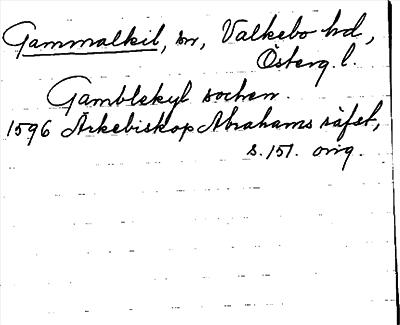 Gammalkil, sn, Valkebo hd,
Österg. l.
Gamblekyl sochen.
1596 Ärkebiskop Abrahams räfst,
s. 151. orig.